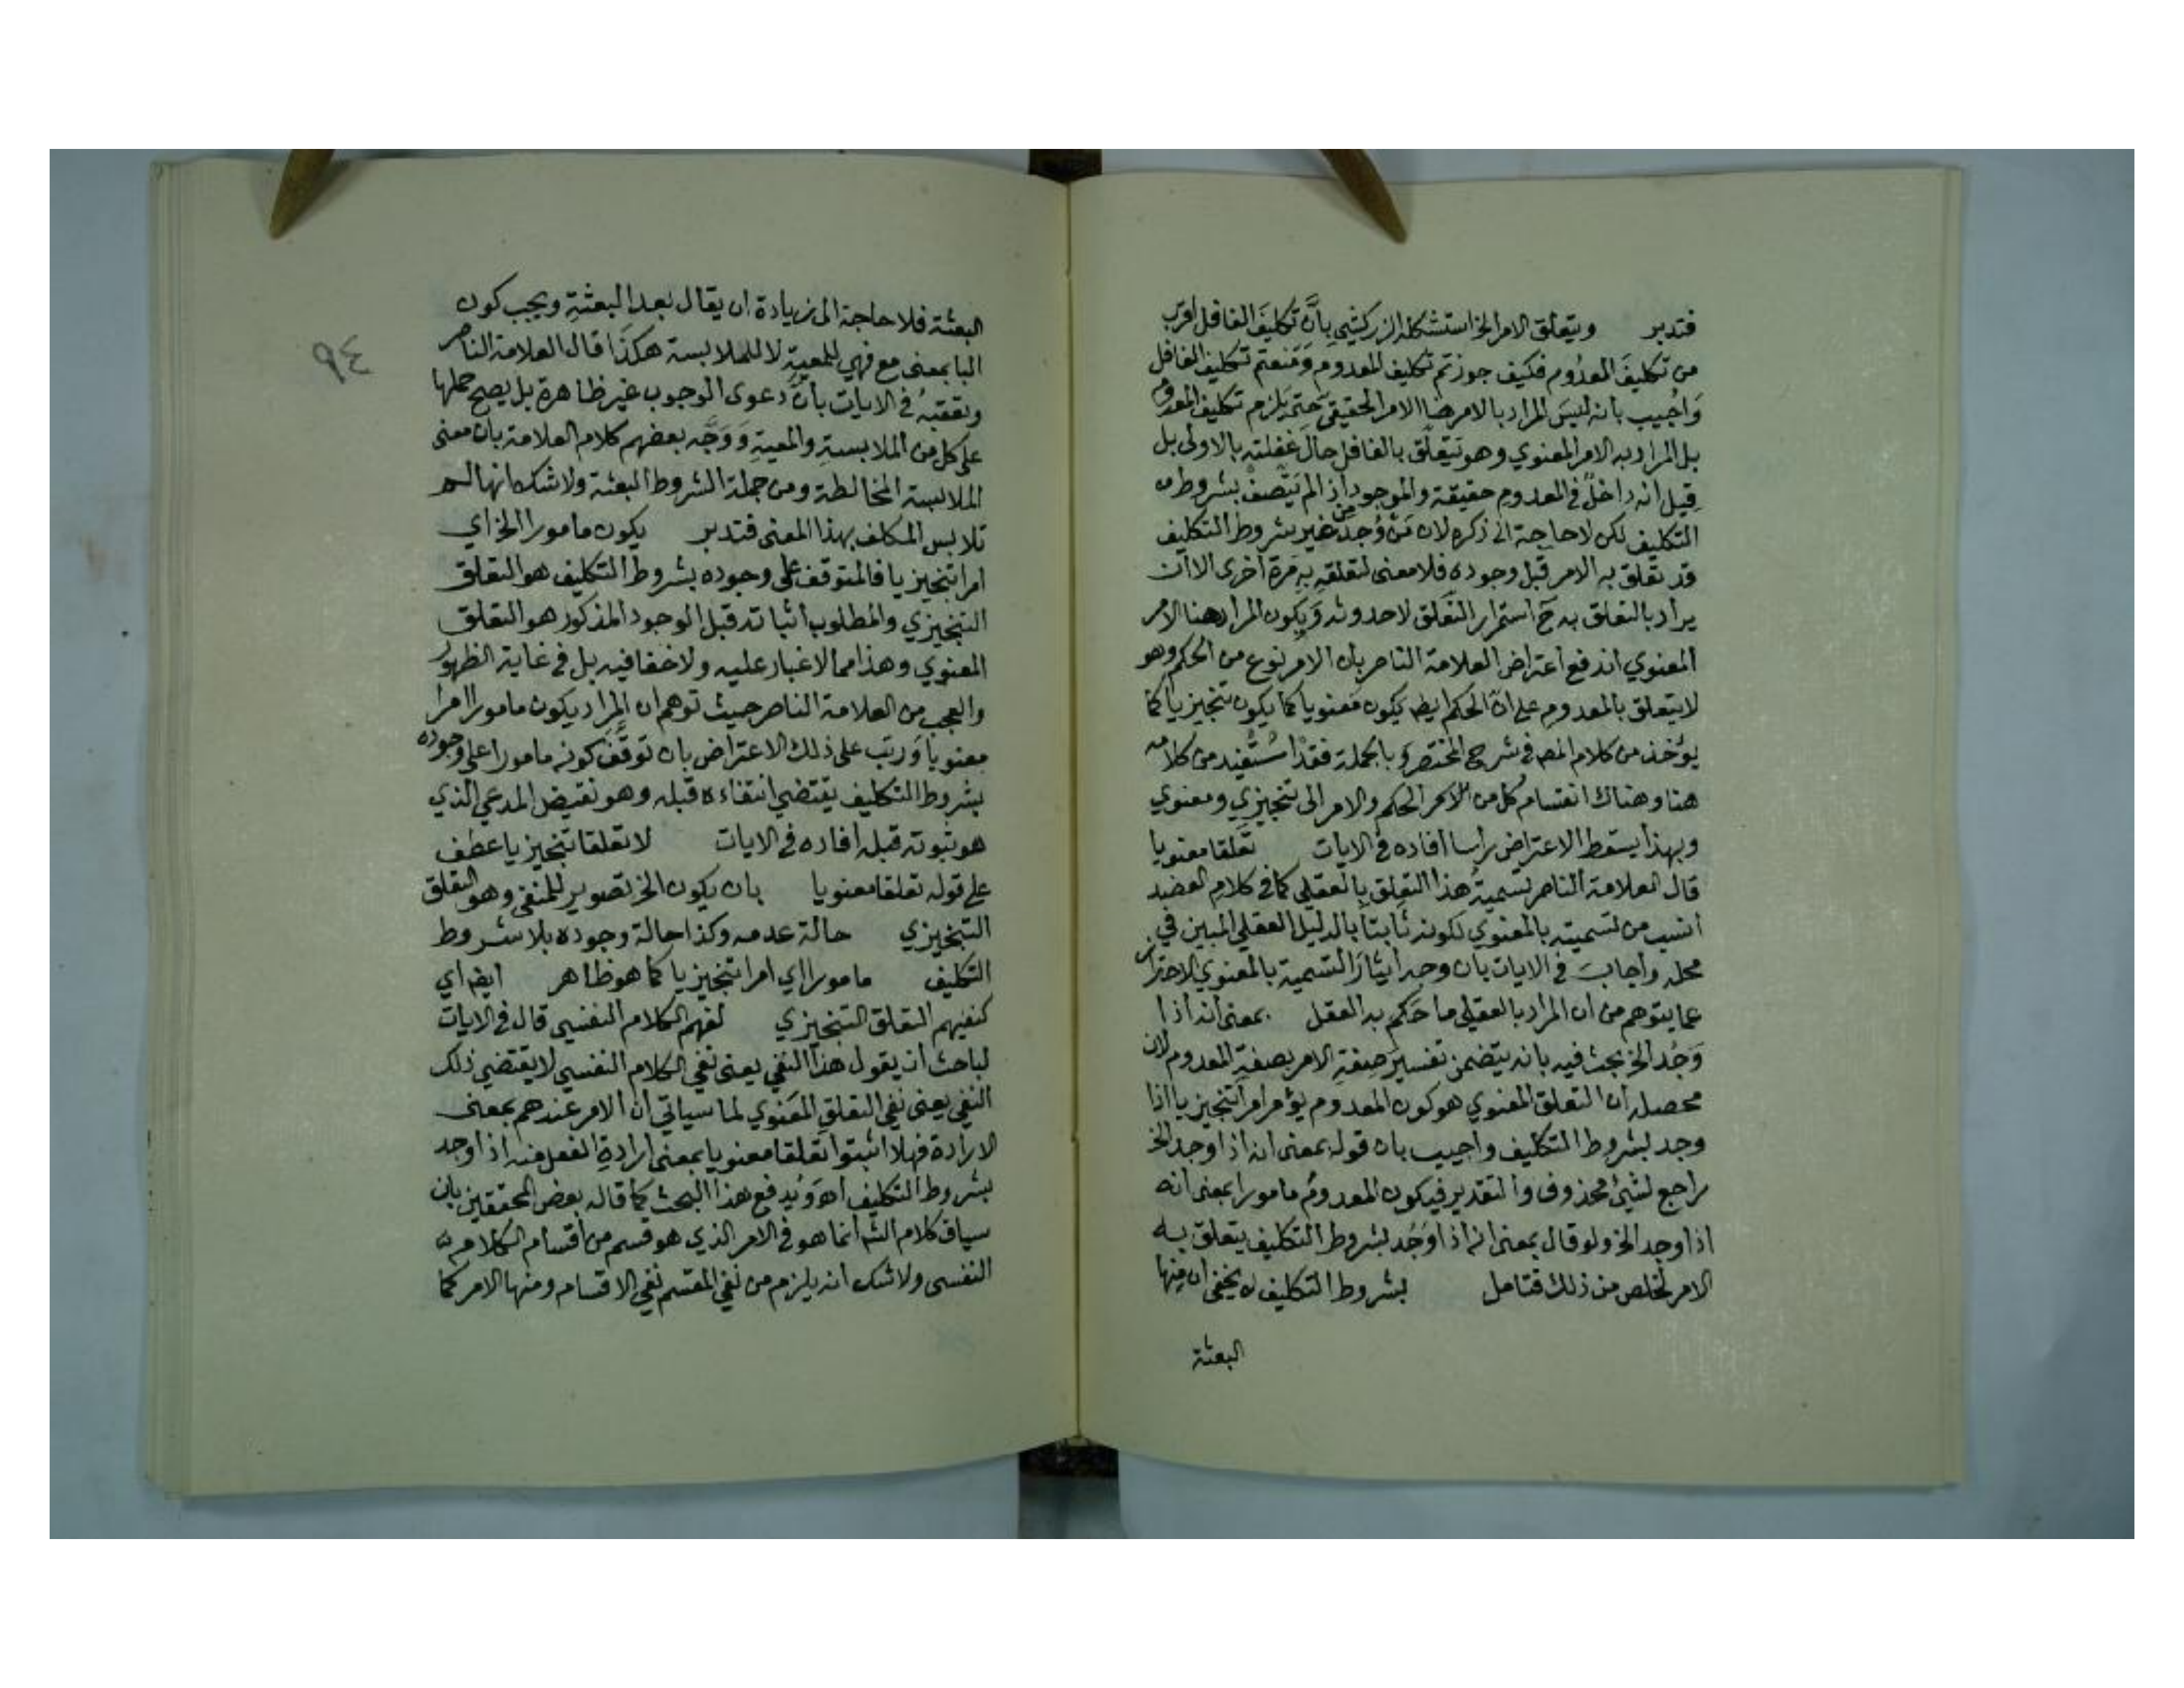 فتدبر ويتعلق الامر الخ استشكله الزركشي بِأَنَّ تكليفَ الغافل اقرب
من تكليفَ المعدُوم فكيف جوزتم تكليف المعدوم وَمَنعتم تكليف الغافل
وَاجُيب بانه ليسَ المراد بالامر هنا الامر الحقيقي حتى يلزم تكليف المعدوم
بل المراد به الامر المعنوي وهو يَتعلق بالغافل حالَ غفلته بالاولى بل
قيل انه داخلٌ في المعدوم حقيقة والموجود اذ الم يَتَّصفْ بشروط من
التكليف لكن لا حاجة الى ذكره لان مَنْ وُجدَ من غير شروط التكليف
قد تعَلق به الامر قَبلَ وجوده فلا معنى لتعلقهِ بهِ مَرة اخرى الا ان
يراد بالتعلق به ح استمرار التعَلق لا حدوثه وَيكون المراد هنا الامر
المعنوي اندفع اعتراض العلامة الناصر بان الامر نوع من الحكم وهو
لا يتعلق بالمعدوم على انَّ الحكم ايض يكون معنويا كما يكون تنجيزيا كما
يؤخذ من كلام المص في شرح المختصر وَ بالجملة فقدْ اسْتُفيد من كلامه
هنا وهناك انقسام كل من الحكم والامر الى تنجيزي ومعنوي
وبهذا يسقط الاعتراض راسا افاده في الايات تعَلقا معنويا
قال العلامة الناصر تسميةُ هذا التعلق بالعقلي كما في كلامِ العضد
انسب من تسميته بالمعنوي لكونه ثابتاً بالدليل العقلي المبين في
محله واجابَ في الايات بان وجه ايثار التسمية بالمعنوي الاحتراز
عما يتوهم من ان المراد بالعقلي ما حَكم به العقل بمعنى انه اذا
وَجُد الخ بحث فيه بانه يتضمن تفسيرَ صفةِ الامر بصفةِ المعدوم لان
محصله ان التعلق المعنوي هو كون المعدوم يؤمر امراً تنجيزيا اذا
وجد بشروط التكليف واجيب بان قوله بمعنى انه اذا وجد الخ
راجع لشيئ محذوف والتقدير فيكون المعدومُ مامورا بمعنى انه
اذا وجد الخ ولو قال بمعنى انه اذا وُجُد بشروط التكليف يتعلق به
الامر لخلص من ذلك فتامل بشروط التكليف لا يخفى ان منها
البعثة
البعثة فلا حاجة الى زيادة ان يقال بعد البعثةِ ويجب كون
البا بمعنى مع فهي للمعيةِ لا للملابسة هكذَا قال العلامة الناصر
وتعقبهُ في الايات بانَّ دعوى الوجوب غير ظاهرة بل يصح حملها
على كل من الملابسةِ والمعيةِ وَوَجَّه بعضهم كلام العلامة بان معنى
الملابسة المخالطة ومن جملة الشروط البعثة ولا شك انها لم
تلابس المكلف بهذا المعنى فتدبر يكون مامورا الخ اي
امرا تنجيزيا فالمتوقف على وجوده بشروط التكليف هو التعلق
التنجيزي والمطلوب اثباته قبل الوجود المذكور هو التعلق
المعنوي وهذا مما لا غبار عليه ولا خفا فيه بل في غاية الظهور
والعجب من العلامة الناصر حيث توهم ان المراد يكون مامورا امرا
معنويا وَرتب على ذلك الاعتراض بان توقَّفَ كونه مامورا على وجوده
بشروط التكليف يقتضي انتفاءه قبله وهو نقيض المدعي الذي
هو ثبوته قبله افاده في الايات لا تعلقا تنجيزيا عطف
على قوله تعلقا معنويا بان يكون الخ تصوير للمنفي وهو التعلق
التنجيزي حالة عدمه وكذا حالة وجوده بلا شروط
التكليف مامورا اي امرا تنجيزيا كما هو ظاهر ايض اي
كنفيهم التعلق التنجيزي لنفيهم الكلام النفسي قال في الايات
لباحث ان يقول هذا النفي يعنى نفي الكلام النفسي لا يقتضي ذلك
النفي يعنى نفي التعلقِ المعَنوي لما سياتي ان الامر عندهم بمعنى
الارادة فهلا اثبتوا تعلقا معنويا بمعنى ارادةِ الفعل منه اذا وجد
بشروط التكليف اهـ وَيُدفع هذا البحث كما قاله بعض المحققين بان
سياق كلام الش انما هو في الامر الذي هو قسم من اقسام الكلام
النفسى ولا شك انه يلزم من نفي المقسم نفي الاقسام ومنها الامر كما
٩٤